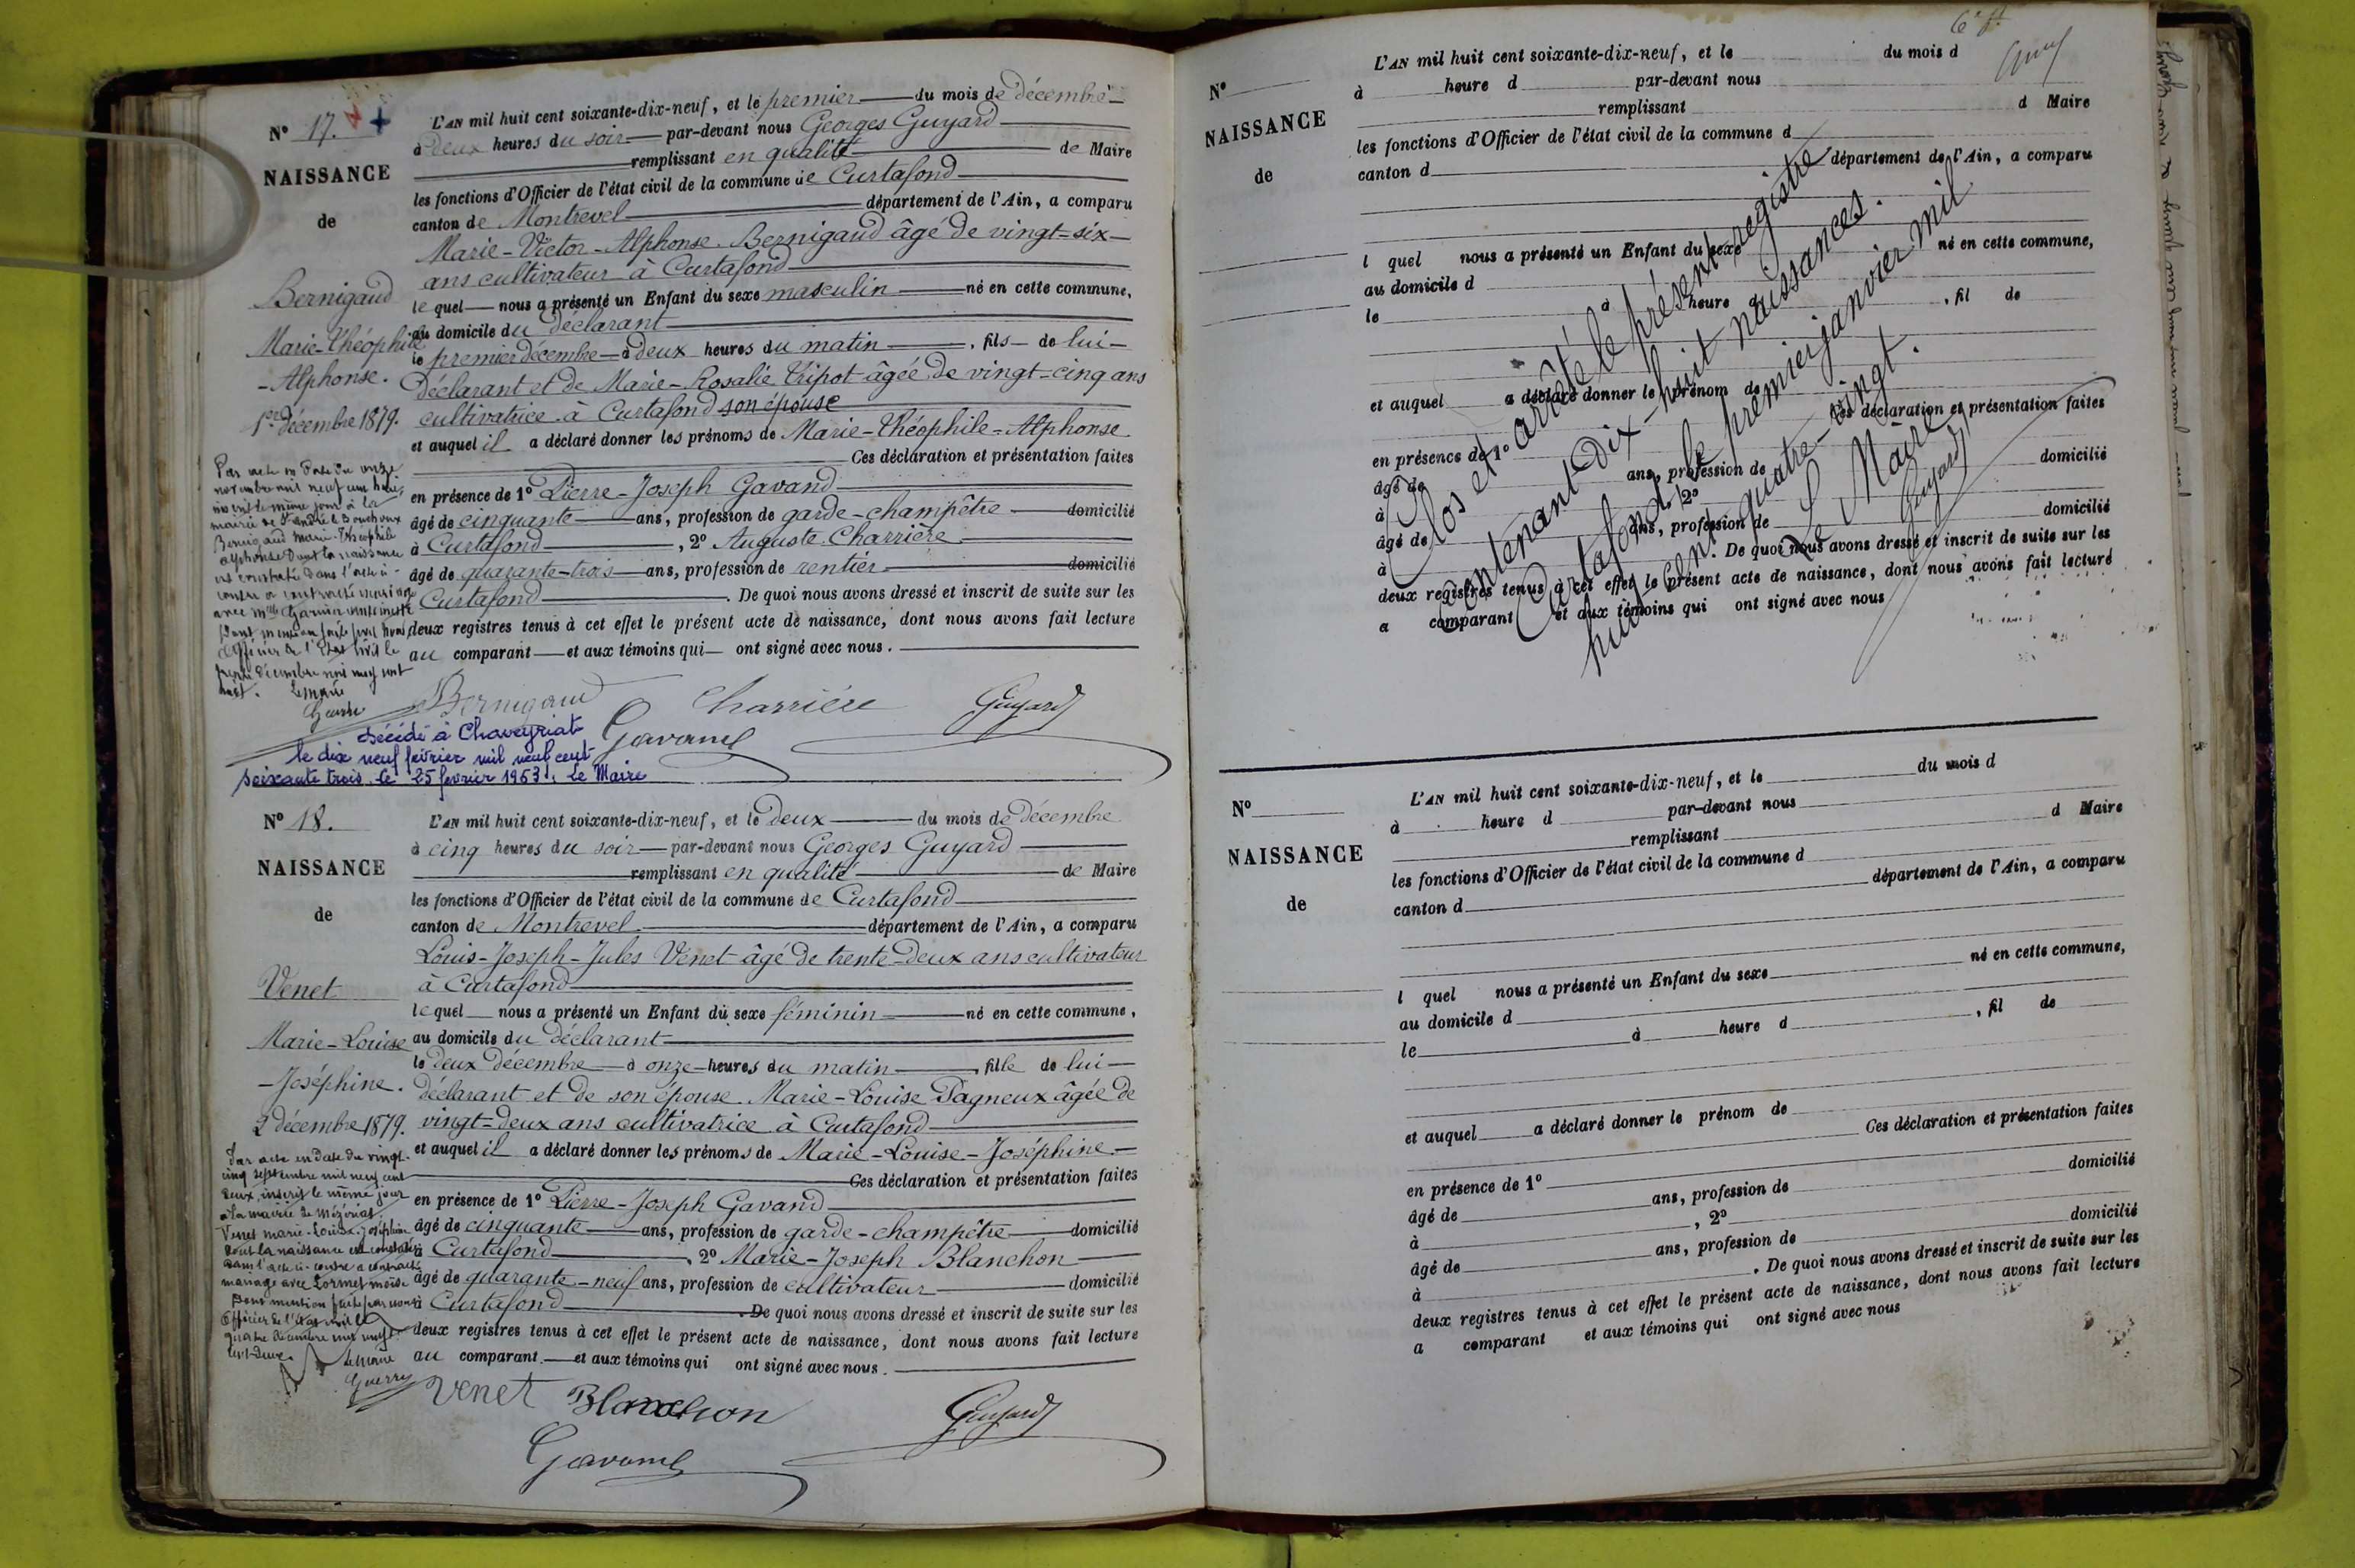 N° 17.
NAISSANCE
de
Bernigaud
Marie-Théophile
-Alphonse.
1er décembre 1879.
L'AN mil huit cent soixante-dix-neuf, et le premier du mois de décembre
à deux heures du soir par-devant nous Georges Guyard
remplissant en qualité de Maire
les fonctions d'Officier de l'état civil de la commune de Curtafond
canton de Montrevel département de l'Ain, a comparu
Marie-Victor-Alphonse Bernigaud âgé de vingt-six
ans cultivateur à Curtafond
le quel nous a présenté un Enfant du sexe masculin né en cette commune,
au domicile du déclarant
le premier décembre à deux heures du matin, fils de lui
déclarant et de Marie-Rosalie Tripot âgée de vingt-cinq ans
cultivatrice à Curtafond son épouse
et auquel il a déclaré donner les prénoms de Marie-Théophile-Alphonse
Ces déclaration et présentation faites
en présence de 1° Pierre-Joseph Gavand
âgé de cinquante ans, profession de garde-champêtre domicilié
à Curtafond, 2° Auguste Charrière
âgé de quarante-trois ans, profession de rentier domicilié
Curtafond. De quoi nous avons dressé et inscrit de suite sur les
deux registres tenus à cet effet le présent acte de naissance, dont nous avons fait lecture
au comparant et aux témoins qui ont signé avec nous.
Par acte en date du onze
novembre mil neuf cent huit,
inscrit le même jour à la
mairie de St André le Bouchoux
Bernigaud Marie-Théophile
Alphonse dont la naissance
est constatée dans l'acte ci-
contre a contracté mariage
avec Mlle Garnier
Dont mention faite par nous
Officier de l'Etat civil le
décembre mil neuf cent
huit. Le Maire
Guerry
Bernigaud Charrière Guyard
Gavand
Décédé à Chaveyriat
le dix neuf février mil neuf cent
soixante trois. le 25 février 1963. Le Maire
N° 18.
NAISSANCE
de
Venet
Marie-Louise
-Joséphine.
2 décembre 1879.
L'AN mil huit cent soixante-dix-neuf, et le deux du mois de décembre
à cinq heures du soir par-devant nous Georges Guyard
remplissant en qualité de Maire
les fonctions d'Officier de l'état civil de la commune de Curtafond
canton de Montrevel département de l'Ain, a comparu
Louis-Joseph-Jules Venet âgé de trente-deux ans cultivateur
à Curtafond
le quel nous a présenté un Enfant du sexe féminin né en cette commune,
au domicile du déclarant
le deux décembre à onze heures du matin, fille de lui
déclarant et de son épouse Marie-Louise Pagneux âgée de
vingt-deux ans cultivatrice à Curtafond
et auquel il a déclaré donner les prénoms de Marie-Louise-Joséphine
Ces déclaration et présentation faites
en présence de 1° Pierre-Joseph Gavand
âgé de cinquante ans, profession de garde-champêtre domicilié
à Curtafond, 2° Marie-Joseph Blanchon
âgé de quarante-neuf ans, profession de cultivateur domicilié
à Curtafond. De quoi nous avons dressé et inscrit de suite sur les
deux registres tenus à cet effet le présent acte de naissance, dont nous avons fait lecture
au comparant et aux témoins qui ont signé avec nous.
Par acte en date du vingt-
cinq septembre mil neuf cent
deux, inscrit le même jour
à la mairie de Mézériat,
Venet Marie-Louise-Joséphine
dont la naissance est constatée
dans l'acte ci-contre a contracté
mariage avec Lormet Moïse
Dont mention faite par nous
Officier de l'Etat civil le
quatre décembre mil neuf
cent deux.
Le Maire
Guerry
Venet Blanchon Guyard
Gavand
N°
NAISSANCE
de
L'AN mil huit cent soixante-dix-neuf, et le du mois d
à heure d par-devant nous
remplissant d Maire
les fonctions d'Officier de l'état civil de la commune d
canton d département de l'Ain, a comparu
l quel nous a présenté un Enfant du sexe né en cette commune,
au domicile d
le à heure d , fil de
et auquel a déclaré donner le prénom de
Ces déclaration et présentation faites
en présence de 1°
âgé de ans, profession de domicilié
à , 2°
âgé de ans, profession de domicilié
à . De quoi nous avons dressé et inscrit de suite sur les
deux registres tenus à cet effet le présent acte de naissance, dont nous avons fait lecture
a comparant et aux témoins qui ont signé avec nous
Clos et arrêté le présent registre
contenant dix-huit naissances.
Curtafond, le premier janvier mil
huit cent quatre-vingt.
Le Maire
Guyard
N°
NAISSANCE
de
L'AN mil huit cent soixante-dix-neuf, et le du mois d
à heure d par-devant nous
remplissant d Maire
les fonctions d'Officier de l'état civil de la commune d
canton d département de l'Ain, a comparu
l quel nous a présenté un Enfant du sexe né en cette commune,
au domicile d
le à heure d , fil de
et auquel a déclaré donner le prénom de
Ces déclaration et présentation faites
en présence de 1°
âgé de ans, profession de domicilié
à , 2°
âgé de ans, profession de domicilié
à . De quoi nous avons dressé et inscrit de suite sur les
deux registres tenus à cet effet le présent acte de naissance, dont nous avons fait lecture
a comparant et aux témoins qui ont signé avec nous